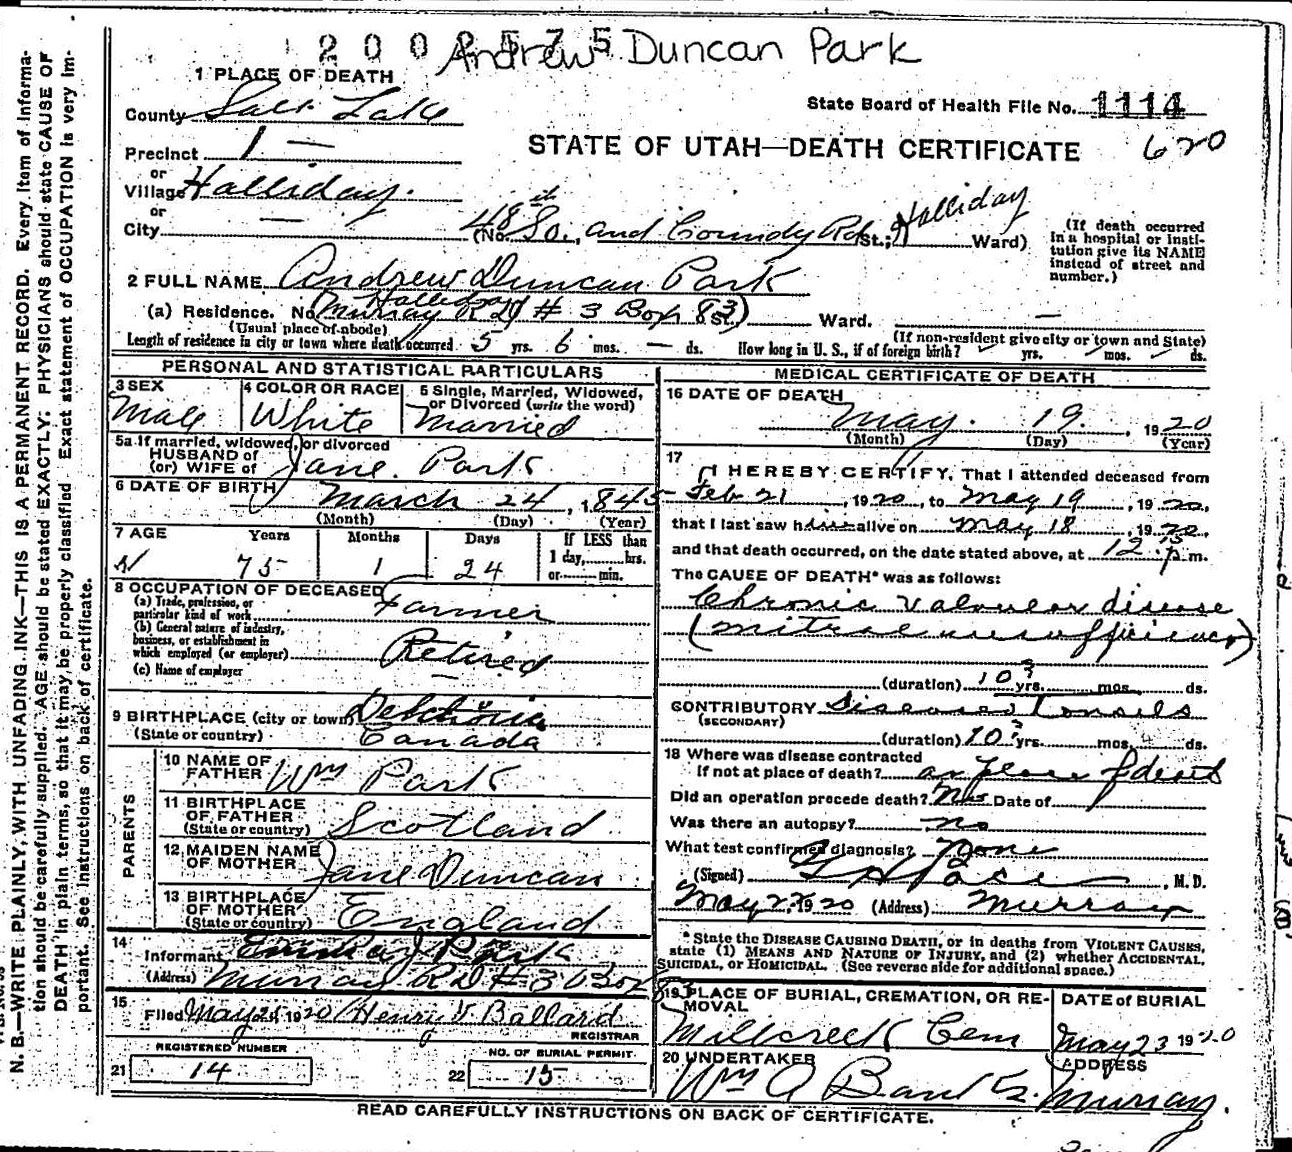 2002575
Andrew Duncan Park
1 PLACE OF DEATH
County Salt Lake
State Board of Health File No. 1114
Precinct 1 —
STATE OF UTAH—DEATH CERTIFICATE 620
or
Village Halliday.
or
City —
(No. 48th So., and County Rd St.; Halliday Ward)
(If death occurred in a hospital or institution give its NAME instead of street and number.)
2 FULL NAME Andrew Duncan Park
(a) Residence. No. (Murray Halliday R D # 3 Box 83) St. Ward. —
(Usual place of abode)
(If non-resident give city or town and State)
Length of residence in city or town where death occurred 5 yrs. 6 mos. — ds. How long in U. S., if of foreign birth? yrs. mos. ds.
PERSONAL AND STATISTICAL PARTICULARS
3 SEX Male
4 COLOR OR RACE White
5 Single, Married, Widowed, or Divorced (write the word) Married
5a If married, widowed, or divorced
HUSBAND of
(or) WIFE of Jane Park
6 DATE OF BIRTH March 24, 1845
(Month) (Day) (Year)
7 AGE Years 75 Months 1 Days 24
If LESS than 1 day, hrs. or min.
8 OCCUPATION OF DECEASED
(a) Trade, profession, or particular kind of work Farmer
(b) General nature of industry, business, or establishment in which employed (or employer) Retired
(c) Name of employer —
9 BIRTHPLACE (city or town)
(State or country) Canada
PARENTS
10 NAME OF FATHER Wm Park
11 BIRTHPLACE OF FATHER (State or country) Scotland
12 MAIDEN NAME OF MOTHER Jane Duncan
13 BIRTHPLACE OF MOTHER (State or country) England
14
Informant J Park
(Address) Murray R D # 3 Box 83
15
Filed May 1920 Henry V. Ballard
REGISTRAR
REGISTERED NUMBER
21 14
NO. OF BURIAL PERMIT
22 15
MEDICAL CERTIFICATE OF DEATH
16 DATE OF DEATH
May. 19. , 1920
(Month) (Day) (Year)
17
I HEREBY CERTIFY, That I attended deceased from
Feb 21, 1920, to May 19, 1920,
that I last saw him alive on May 18, 1920,
and that death occurred, on the date stated above, at 12 15 p.m.
The CAUSE OF DEATH* was as follows:
Chronic valvular disease
(mitral insufficiency)
(duration) 10? yrs. mos. ds.
CONTRIBUTORY Diseased Tonsils
(SECONDARY)
(duration) 10? yrs. mos. ds.
18 Where was disease contracted
if not at place of death? at place of death
Did an operation precede death? No Date of
Was there an autopsy? no
What test confirmed diagnosis? None
(Signed) G H Pace, M. D.
May 1920 (Address) Murray
* State the DISEASE CAUSING DEATH, or in deaths from VIOLENT CAUSES, state (1) MEANS AND NATURE OF INJURY, and (2) whether ACCIDENTAL, SUICIDAL, or HOMICIDAL. (See reverse side for additional space.)
19 PLACE OF BURIAL, CREMATION, OR REMOVAL
Millcreek Cem
DATE of BURIAL
May 23 1920
20 UNDERTAKER
Wm A
ADDRESS
Murray.
READ CAREFULLY INSTRUCTIONS ON BACK OF CERTIFICATE.
N. B.—WRITE PLAINLY, WITH UNFADING INK—THIS IS A PERMANENT RECORD. Every item of information should be carefully supplied. AGE should be stated EXACTLY. PHYSICIANS should state CAUSE OF DEATH in plain terms, so that it may be properly classified. Exact statement of OCCUPATION is very important. See instructions on back of certificate.